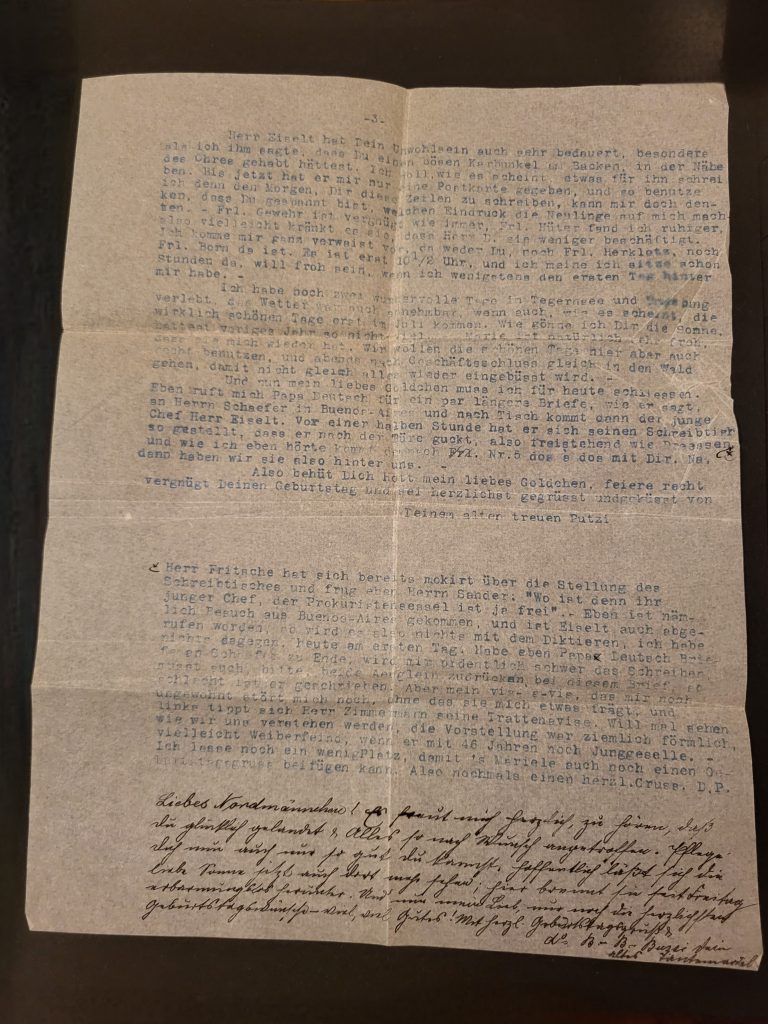 -3-
Herr Eiselt hat Dein Unwohlsein auch sehr bedauert, besonders
als ich ihm sagte, dass Du einen bösen Karbunkel am Backen, in der Nähe
des Ohres gehabt hättest. Ich soll, wie es scheint, etwas für ihn schrei
ben. Bis jetzt hat er mir nur eine Postkarte gegeben, und so benutze
ich denn den Morgen, Dir diese Zeilen zu schreiben, kann mir doch den-
ken, dass Du gespannt bist, welchen Eindruck die Neulinge auf mich mach-
ten. - Frl. Gewehr ist vergnügt wie immer, Frl. Hüter fand ich ruhiger,
also vielleicht kränkt es sie, dass Herr T. sie weniger beschäftigt.
Ich komme mir ganz verwaist vor, da weder Du, noch Frl. Herklotz, noch
Frl. Born da ist. Es ist erst 10 1/2 Uhr, und ich meine ich sitze schon
Stunden da, will froh sein, wenn ich wenigstens den ersten Tag hinter
mir habe. -
Ich habe noch zwei wundervolle Tage in Tegernsee und
verlebt, das Wetter war auch annehmbar, wenn auch, wie es scheint, die
wirklich schönen Tage erst im Juli kommen. Wie gönne ich Dir die Sonne,
hattest voriges Jahr so nicht Marie ist natürlich sehr froh,
dass sie mich wieder hat. Wir wollen die schönen Tage hier aber auch
recht benutzen, und abends nach Geschäftsschluss gleich in den Wald
gehen, damit nicht gleich alles wieder eingebüsst wird. -
Und nun mein liebes Goldchen muss ich für heute schliessen.
Eben ruft mich Papa Deutsch für ein par längere Briefe, wie er sagt,
an Herrn Schaefer in Buenos-Aires und nach Tisch kommt dann der junge
Chef Herr Eiselt. Vor einer halben Stunde hat er sich seinen Schreibtisch
so gestellt, dass er nach der Türe guckt, also freistehend wie
und wie ich eben hörte kommt dannoch Frl. Nr.5 dos à dos mit Dir. Na,
dann haben wir sie also hinter uns. -
Also behüt Dich Gott mein liebes Goldchen, feiere recht
vergnügt Deinen Geburtstag und sei herzlichst gegrüsst undgeküsst von
Deinem alten treuen Putzi
Herr Fritsche hat sich bereits mokirt über die Stellung des
Schreibtisches und frug eben Herrn Sander: "Wo ist denn ihr
junger Chef, der Prokuristensessel ist ja frei".- Eben ist näm-
lich Besuch aus Buenos-Aires gekommen, und ist Eiselt auch abge-
rufen worden, so wird es also nichts mit dem Diktieren, ich habe
nichts dagegen, heute am ersten Tag. Habe eben Papa Deutsch
zu Ende, wird mir ordentlich schwer das Schreiben,
musst auch, bitte, beide Aeuglein zudrücken bei diesem Brief, so
schlecht ist er geschrieben. Aber mein vis-à-vis, das mir noch
ungewohnt stört mich noch, ohne das sie mich etwas frägt, und
links tippt sich Herr Zimmermann seine Trattenavise. Will mal sehen
wie wir uns verstehen werden, die Vorstellung war ziemlich förmlich,
vielleicht Weiberfeind, wenn er mit 46 Jahren noch Junggeselle. -
Ich lasse noch ein wenigPlatz, damit 's Mariele auch noch einen Ge-
burtstagsgruss beifügen kann. Also nochmals einen herzl.Gruss, D.P.
Liebes Nordmännchen! Es freut mich herzlich, zu hören, daß
du glücklich gelandet & Alles so nach Wunsch angetroffen. Pflege
dich nun auch nur so gut du kannst, hoffentlich läßt sich die
liebe Sonne jetzt auch dort mehr sehen; hier brennt sie seit Freitag
erbarmungslos herunter. Und nun mein Lieb, nur noch die herzlichsten
Geburtstagswünsche - viel, viel Gutes! Mit herzl. Geburtstagsgruß &
B- B- Buzzi dein
altes